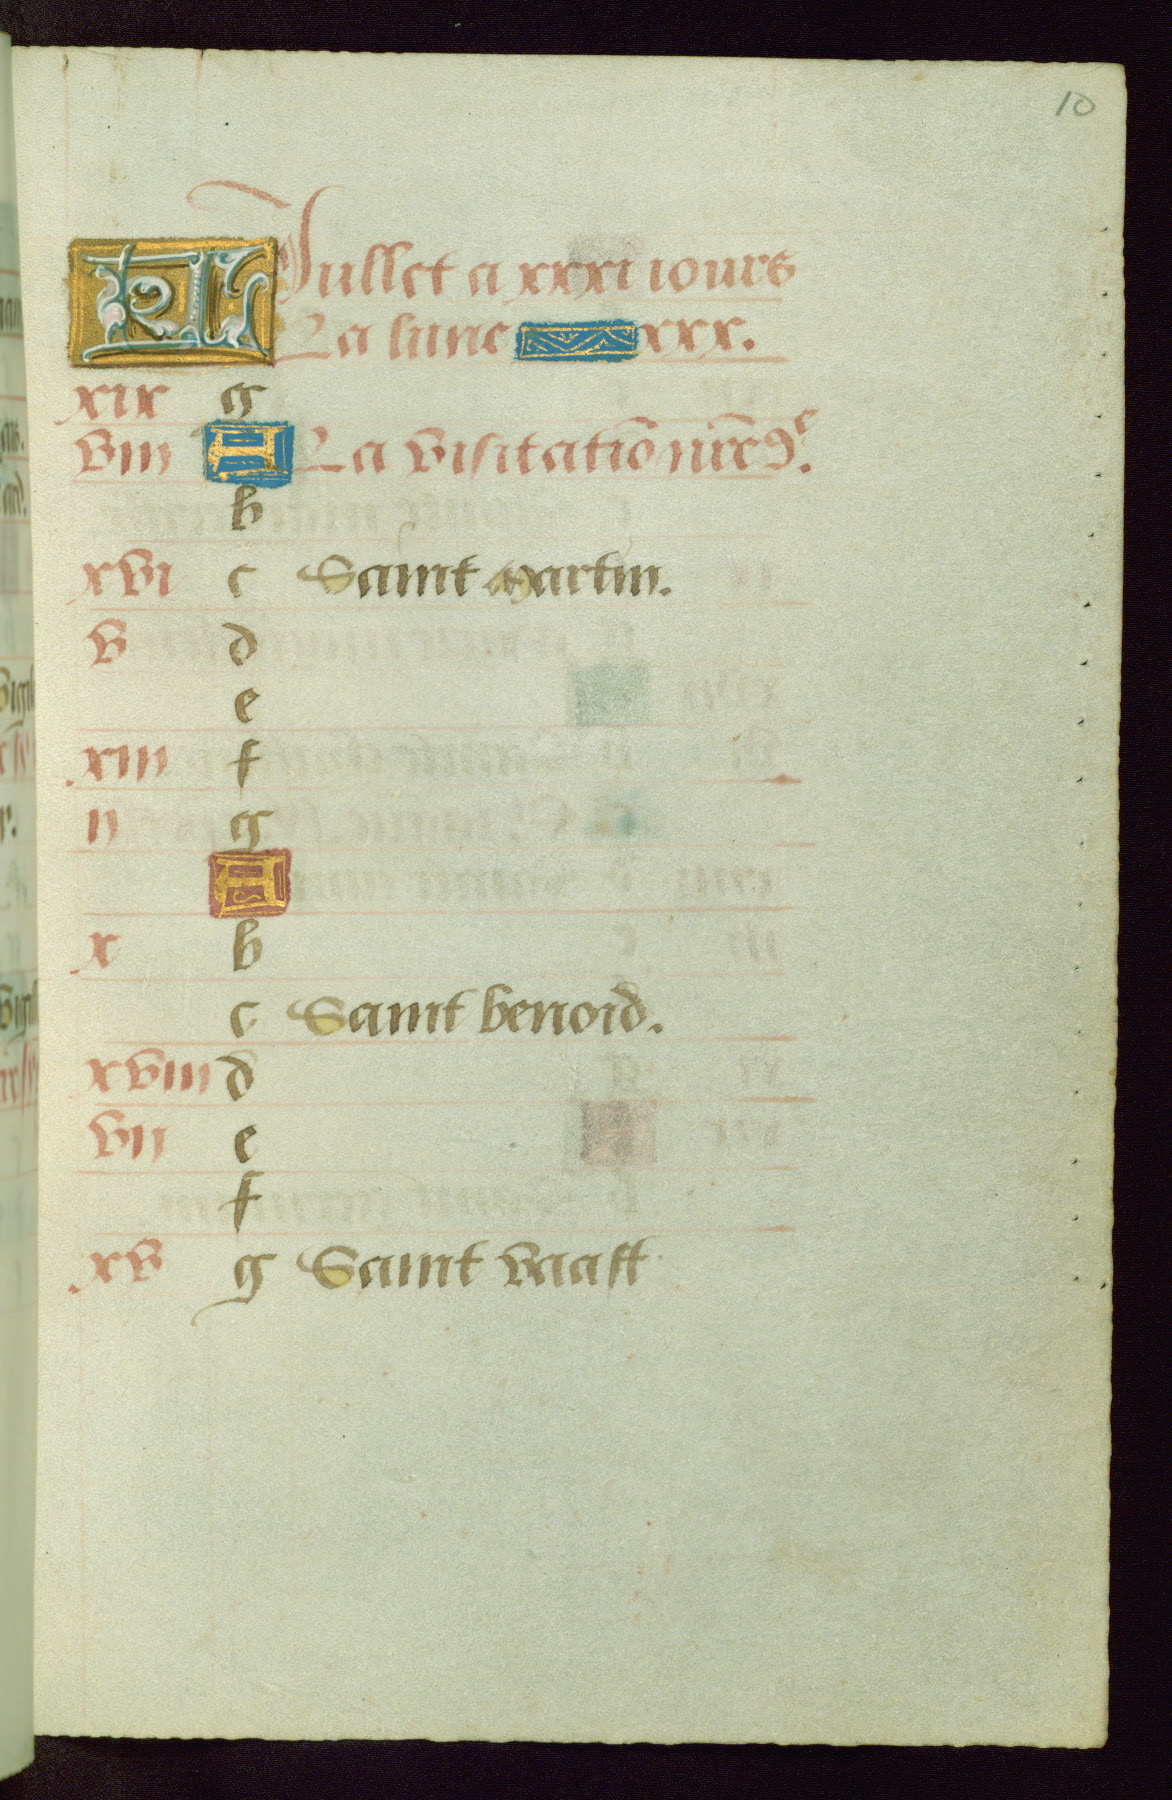 10
KL Jullet a xxxi iours
La lune xxx.
xix g
viii A La visitatiō nr̄e dᵉ.
b
xvi c Saint Martin.
v d
e
xiii f
ii g
A
x b
c Saint benoid.
xviii d
vii e
f
xv g Saint vaast